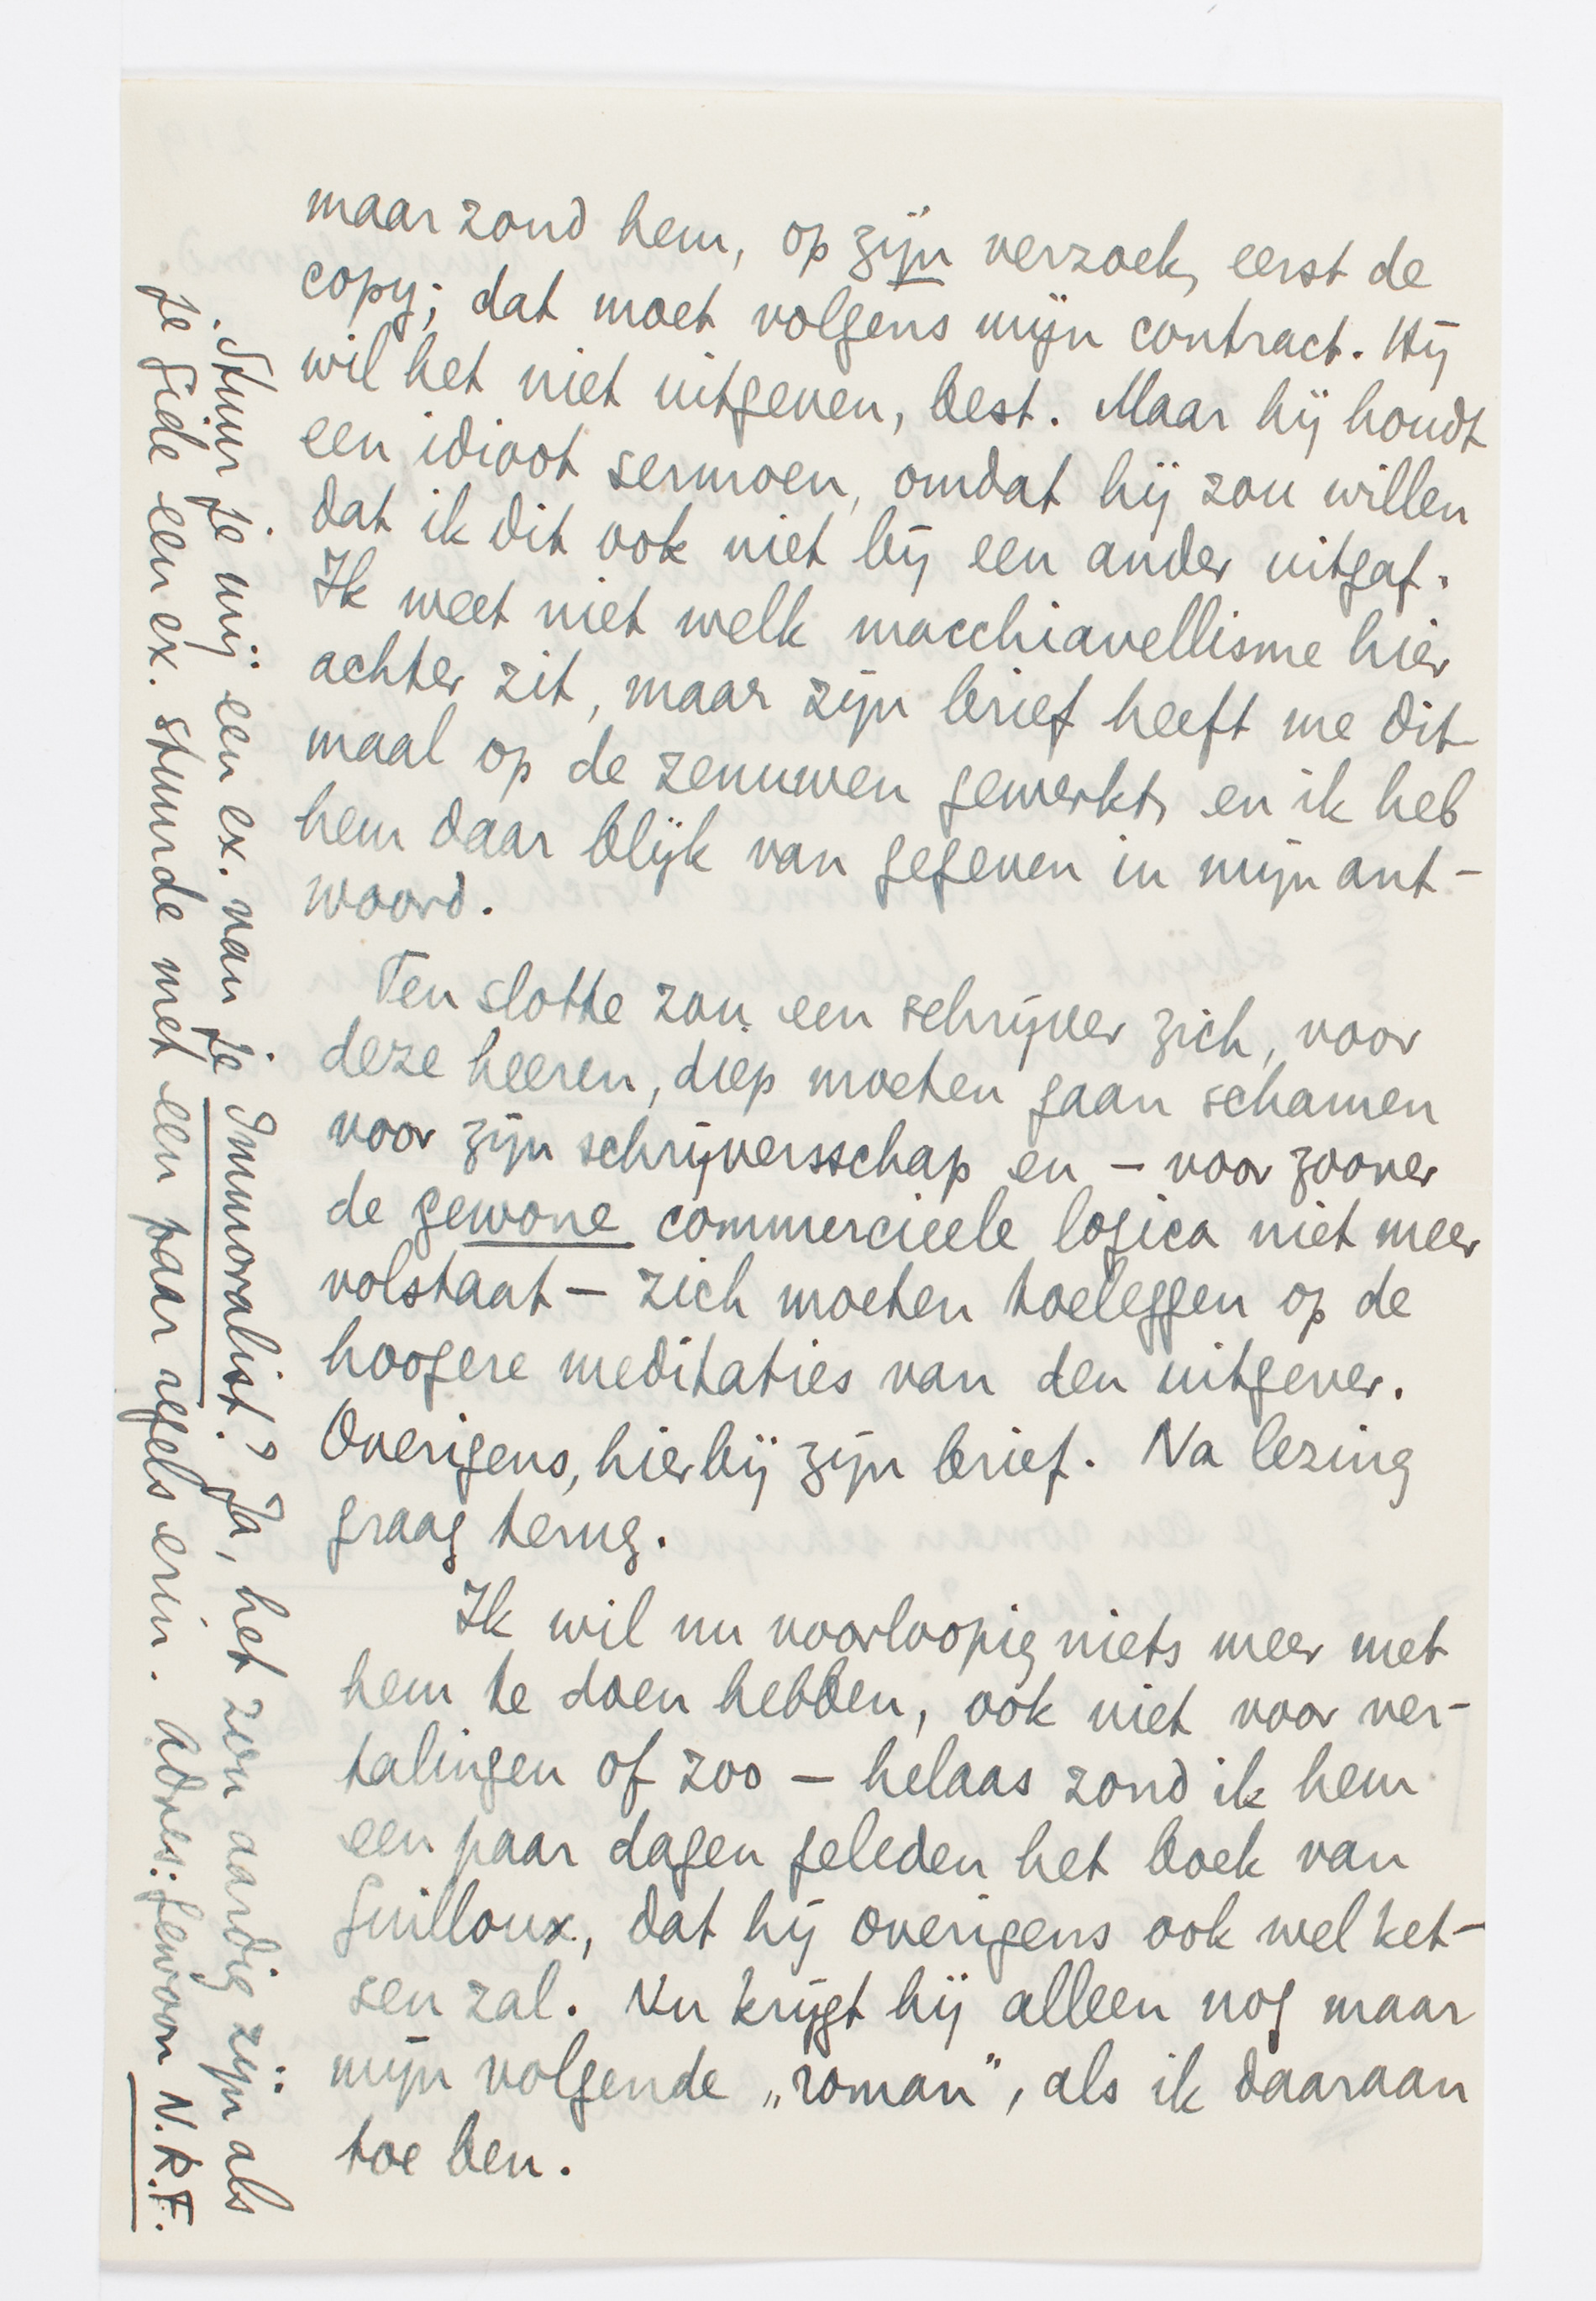 maar zond hem, op zijn verzoek, eerst de
copy; dat moet volgens mijn contract. Hij
wil het niet uitgeven, best. Maar hij houdt
een idioot sermoen, omdat hij zou willen
dat ik dit ook niet bij een ander uitgaf.
Ik weet niet welk macchiavellisme hier
achter zit, maar zijn brief heeft me dit-
maal op de zenuwen gewerkt, en ik heb
hem daar blijk van gegeven in mijn ant-
woord.
Ten slotte zou een schrijver zich, voor
deze heeren, diep moeten gaan schamen
voor zijn schrijversschap en – voor zoover
de gewone commercieele logica niet meer
volstaat – zich moeten toeleggen op de
hoogere meditaties van den uitgever.
Overigens, hierbij zijn brief. Na lezing
graag terug.
Ik wil nu voorloopig niets meer met
hem te doen hebben, ook niet voor ver-
talingen of zoo – helaas zond ik hem
een paar dagen geleden het boek van
Guilloux, dat hij overigens ook wel ket-
sen zal. Nu krijgt hij alleen nog maar
mijn volgende „roman”, als ik daaraan
toe ben.
Stuur je mij een ex. van je Immoralist? Ja, het zou aardig zijn als
je Gide een ex. stuurde met een paar regels erin. Adres: gewoon N.R.F.